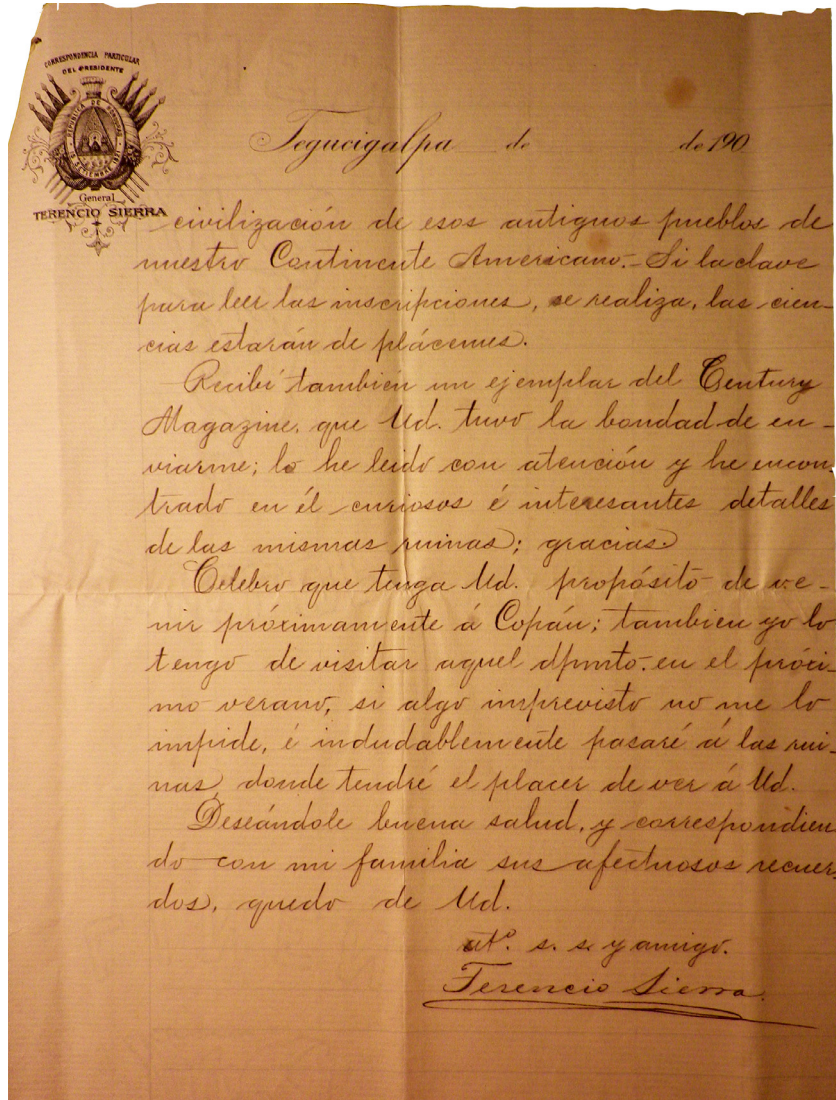 CORRESPONDENCIA PARTICULAR
DEL PRESIDENTE
REPÚBLICA DE HONDURAS
15 SETIEMBRE 1821
General
TERENCIO SIERRA
Tegucigalpa de de 190
civilización de esos antiguos pueblos de
nuestro Continente Americano.- Si la clave
para leer las inscripciones, se realiza, las cien-
cias estarán de plácemes.
Recibí también un ejemplar del Century
Magazine, que Ud. tuvo la bondad de en-
viarme; lo he leido con atención y he encon-
trado en él curiosos é interesantes detalles
de las mismas ruinas; gracias.
Celebro que tenga Ud. propósito de ve-
nir próximamente á Copán; tambien yo lo
tengo de visitar aquel dpmto. en el próxi-
mo verano, si algo imprevisto no me lo
impide, é indudablemente pasaré á las rui-
nas donde tendré el placer de ver á Ud.
Deseándole buena salud, y correspondien
do con mi familia sus afectuosos recuer-
dos, quedo de Ud.
s. s. y amigo.
Terencio Sierra.